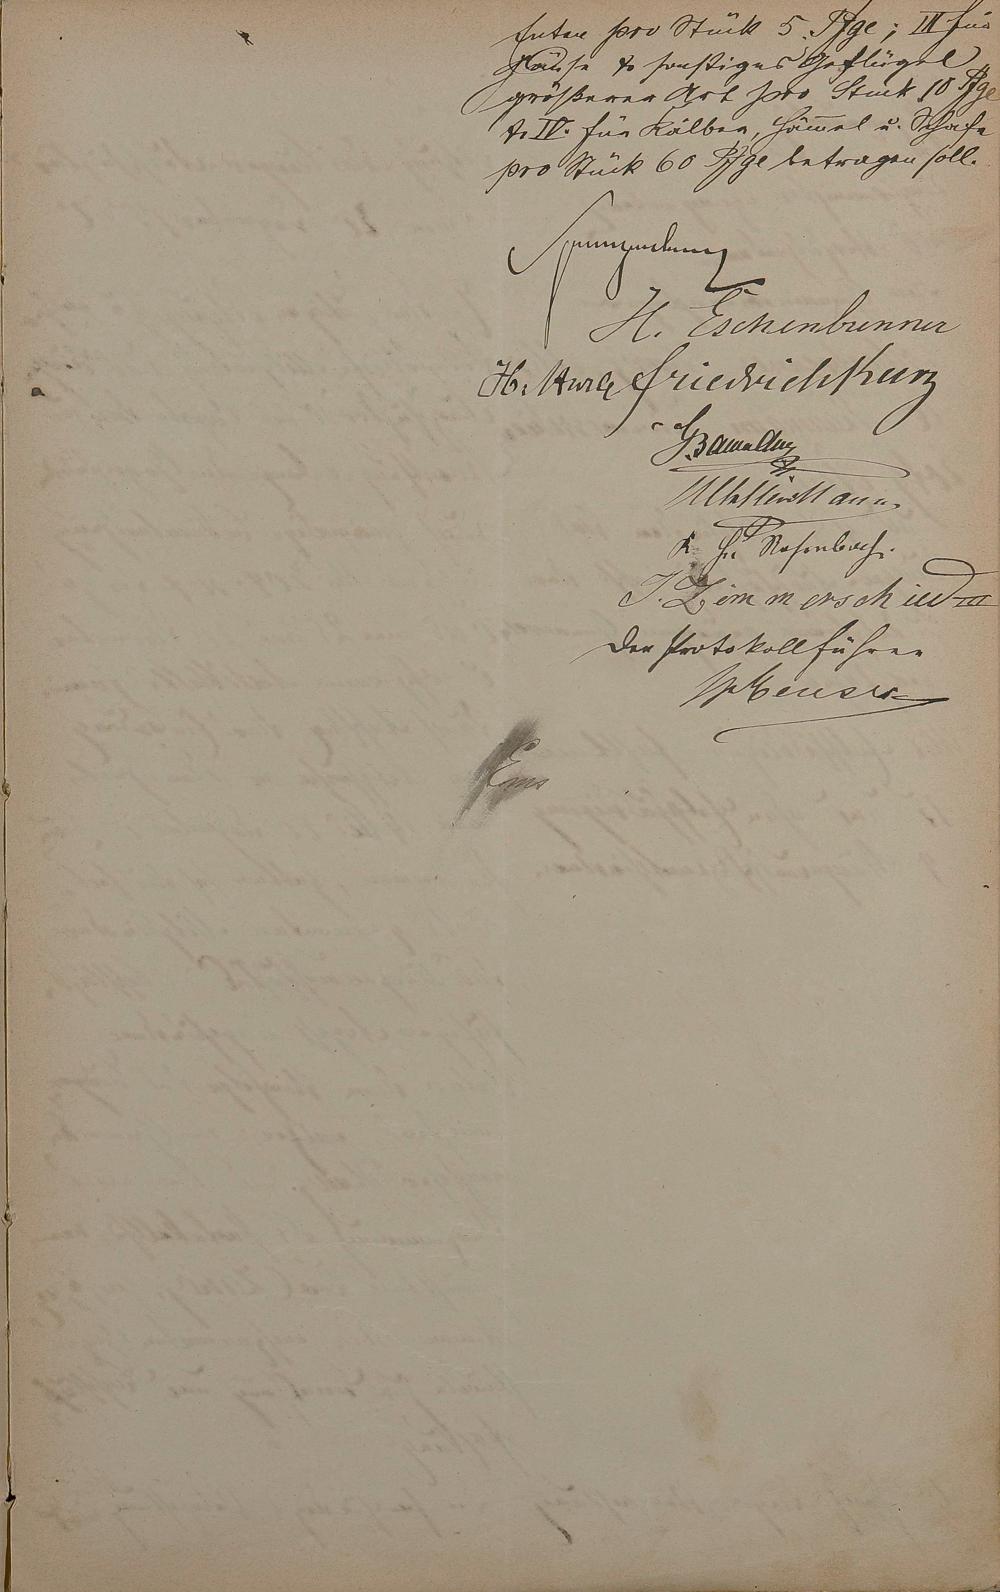 Enten pro Stück 5 Pfge; III für
Gänse & sonstiges Geflügel
größerer Art pro Stück 10 Pfge
& IV. für Kälber, Häm̄el u. Schafe
pro Stück 60 Pfge betragen soll.
Spangenberg
H. Eschenbrenner
H. Kurz Friedrich Kurz
K. H. Rosenbach.
J. Zimmerschied III
Der Protokollführer
Ems